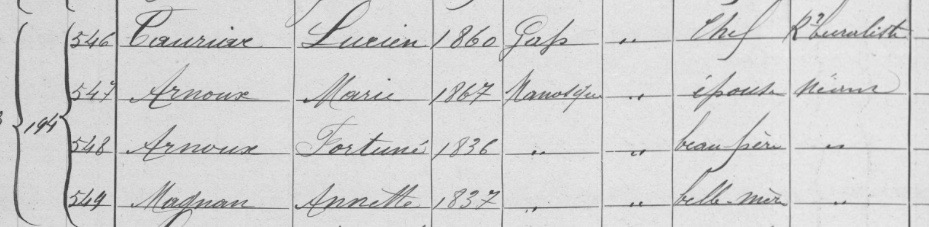 194
546 Tauriac Lucien 1860 Gap " Chef
547 Arnoux Marie 1867 Manosque " épouse néant
548 Arnoux Fortuné 1836 " " beau père "
549 Magnan Annette 1837 " " belle-mère "